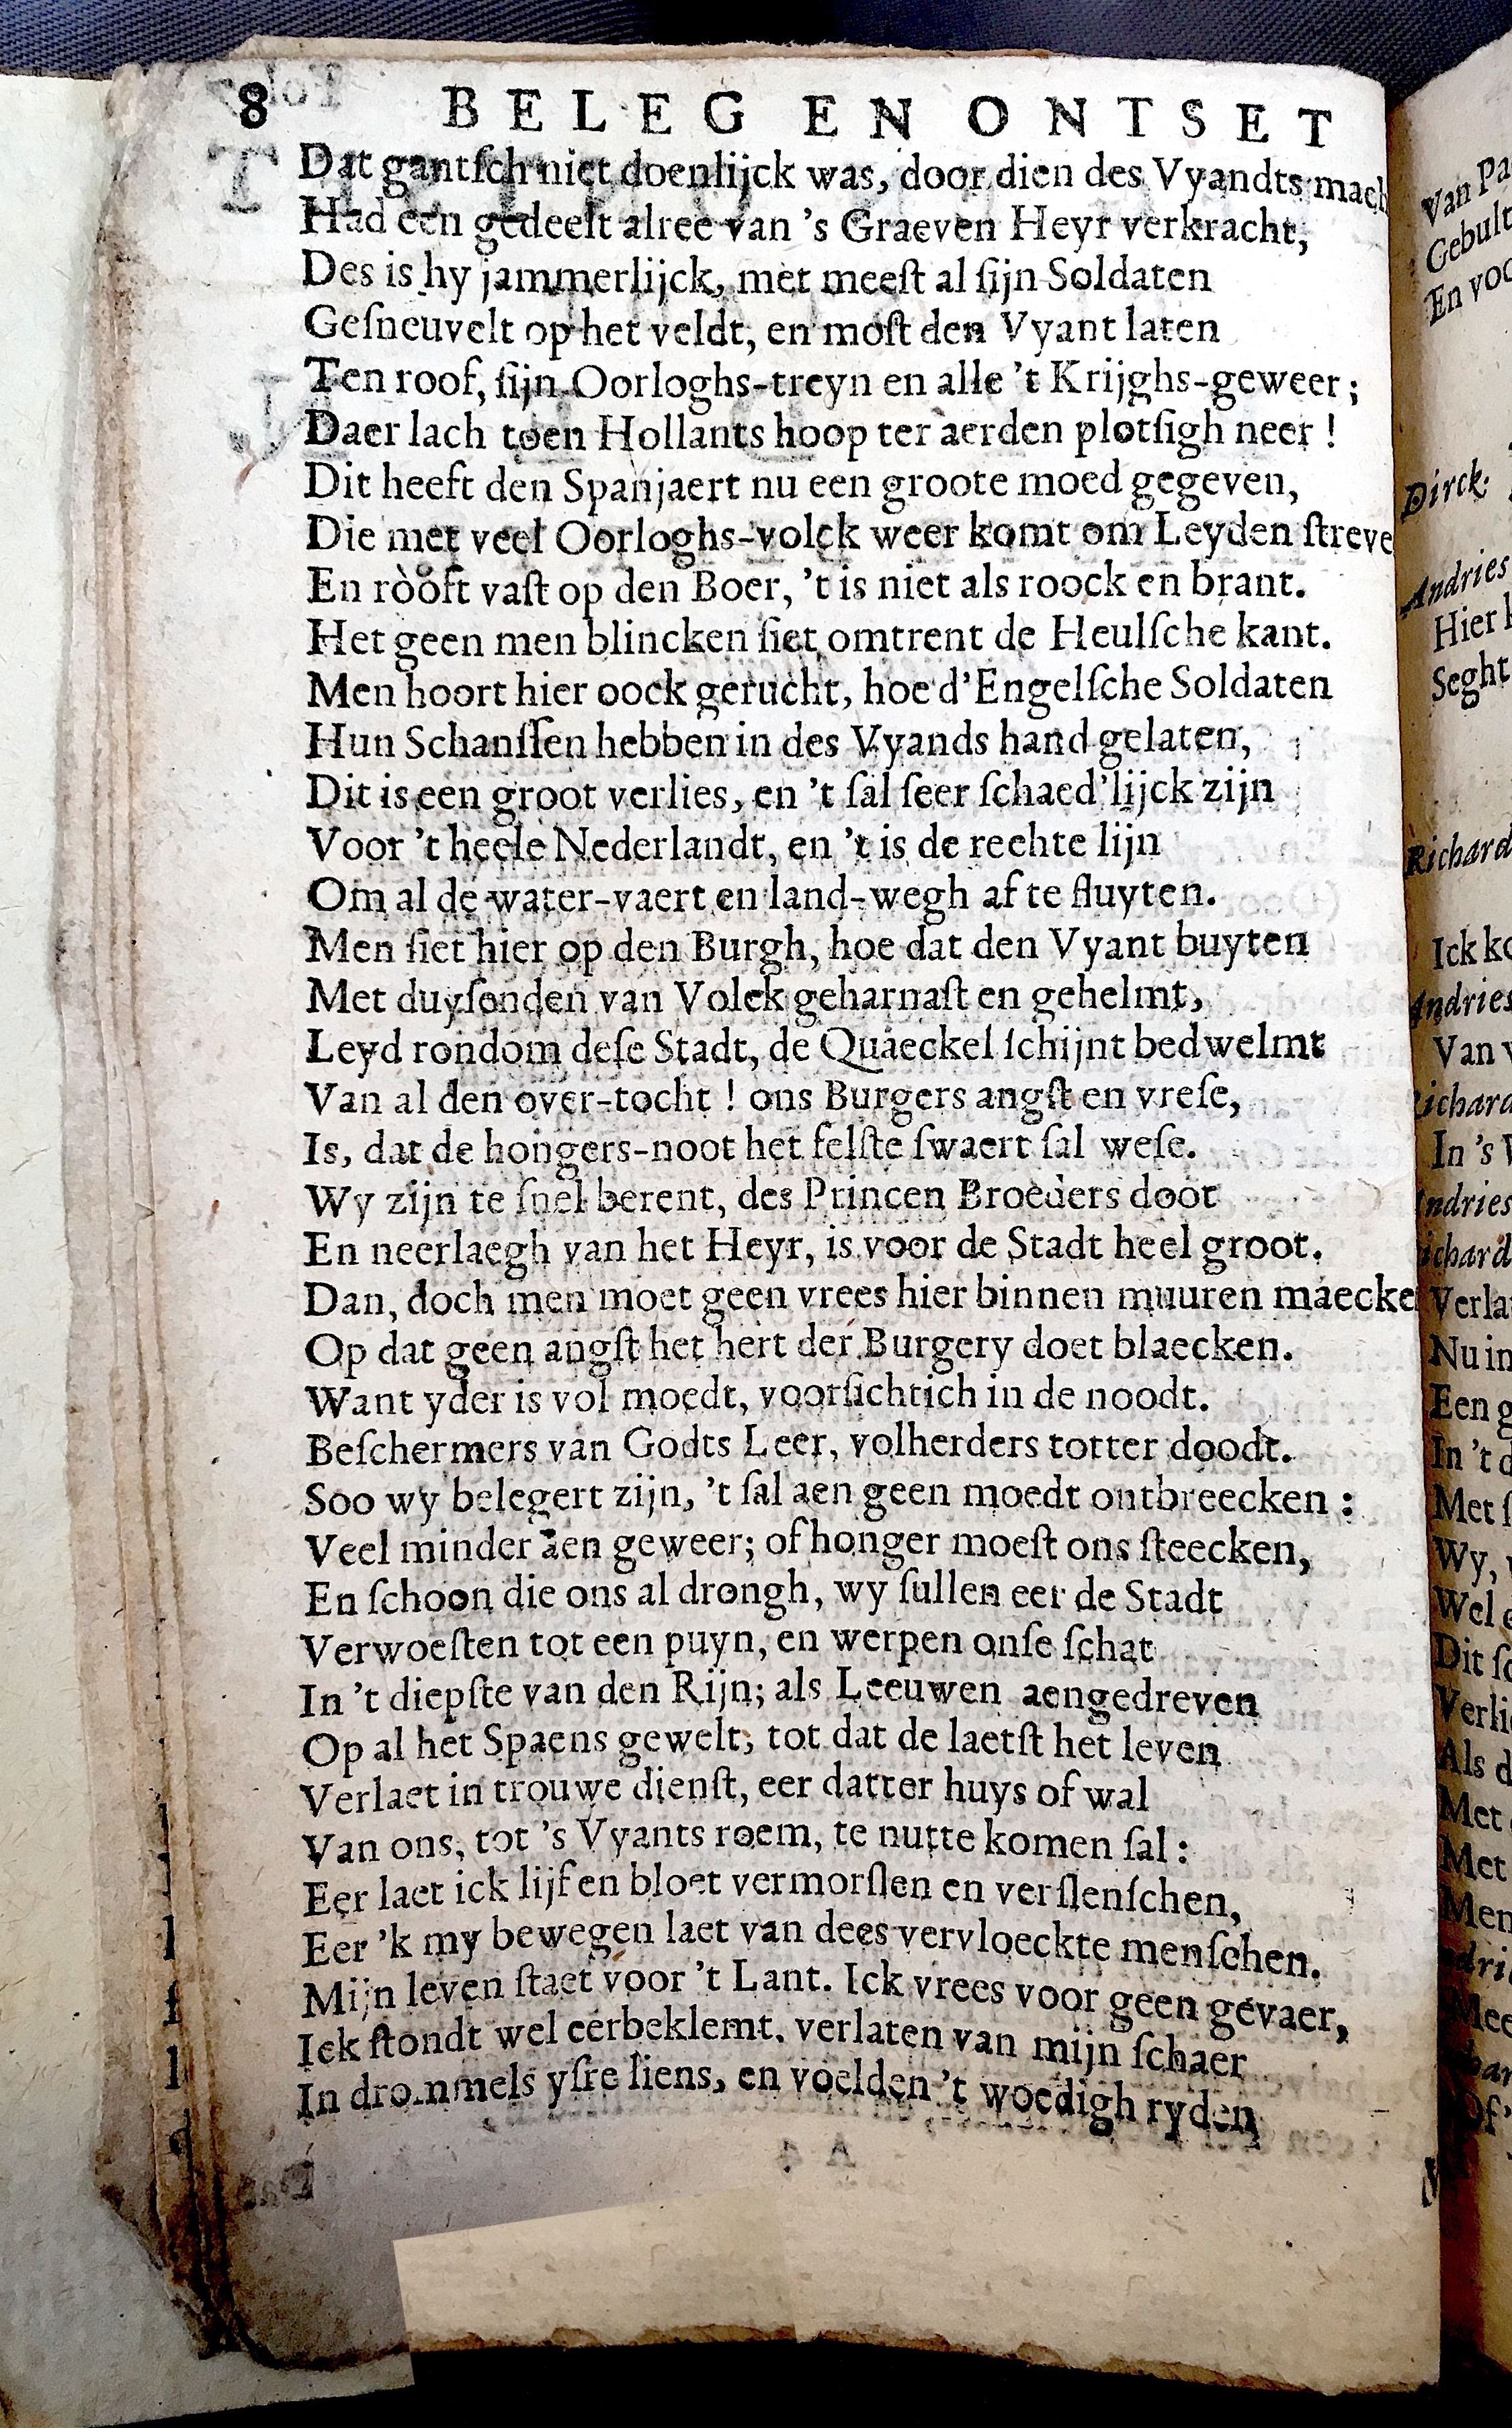 8 BELEG EN ONTSET
Dat gantſch niet doenlijck was, door dien des Vyandts mach
Had een gedeelt alree van 's Graeven Heyr verkracht,
Des is hy jammerlijck, met meeſt al ſijn Soldaten
Geſneuvelt op het veldt, en moſt den Vyant laten
Ten roof, ſijn Oorloghs-treyn en alle 't Krijghs-geweer;
Daer lach toen Hollants hoop ter aerden plotſigh neer!
Dit heeft den Spanjaert nu een groote moed gegeven,
Die met veel Oorloghs-volck weer komt om Leyden ſtreve
En rooft vaſt op den Boer, 't is niet als roock en brant.
Het geen men blincken ſiet omtrent de Heulſche kant.
Men hoort hier oock gerucht, hoe d'Engelſche Soldaten
Hun Schanſſen hebben in des Vyands hand gelaten,
Dit is een groot verlies, en 't ſal ſeer ſchaed'lijck zijn
Voor 't heele Nederlandt, en 't is de rechte lijn
Om al de water-vaert en land-wegh af te ſluyten.
Men ſiet hier op den Burgh, hoe dat den Vyant buyten
Met duyſonden van Volck geharnaſt en gehelmt,
Leyd rondom deſe Stadt, de Quaeckel ſchijnt bedwelmt
Van al den over-tocht! ons Burgers angſt en vreſe,
Is, dat de hongers-noot het felſte ſwaert ſal weſe.
Wy zijn te ſnel berent, des Princen Broeders doot
En neerlaegh van het Heyr, is voor de Stadt heel groot.
Dan, doch men moet geen vrees hier binnen muuren maecke
Op dat geen angſt het hert der Burgery doet blaecken.
Want yder is vol moedt, voorſichtich in de noodt.
Beſchermers van Godts Leer, volherders totter doodt.
Soo wy belegert zijn, 't ſal aen geen moedt ontbreecken:
Veel minder aen geweer; of honger moeſt ons ſteecken,
En ſchoon die ons al drongh, wy ſullen eer de Stadt
Verwoeſten tot een puyn, en werpen onſe ſchat
In 't diepſte van den Rijn; als Leeuwen aengedreven
Op al het Spaens gewelt, tot dat de laetſt het leven
Verlaet in trouwe dienſt, eer datter huys of wal
Van ons, tot 's Vyants roem, te nutte komen ſal:
Eer laet ick lijf en bloet vermorſlen en verſlenſchen,
Eer 'k my bewegen laet van dees vervloeckte menſchen.
Mijn leven ſtaet voor 't Lant. Ick vrees voor geen gevaer,
Ick ſtondt wel eer beklemt, verlaten van mijn ſchaer
In drommels yſre liens, en voelden 't woedigh ryden
Van Pa
Gebult
En voo
Dirck.
Andries
Hier
Seght
Richard
Ick ko
Andries
Van
Richard
In 's
Andries
Richard
Verla
Nu in
Een g
In 't
Met
Wy,
Wel
Dit
Verli
Als d
Met
Met
Men